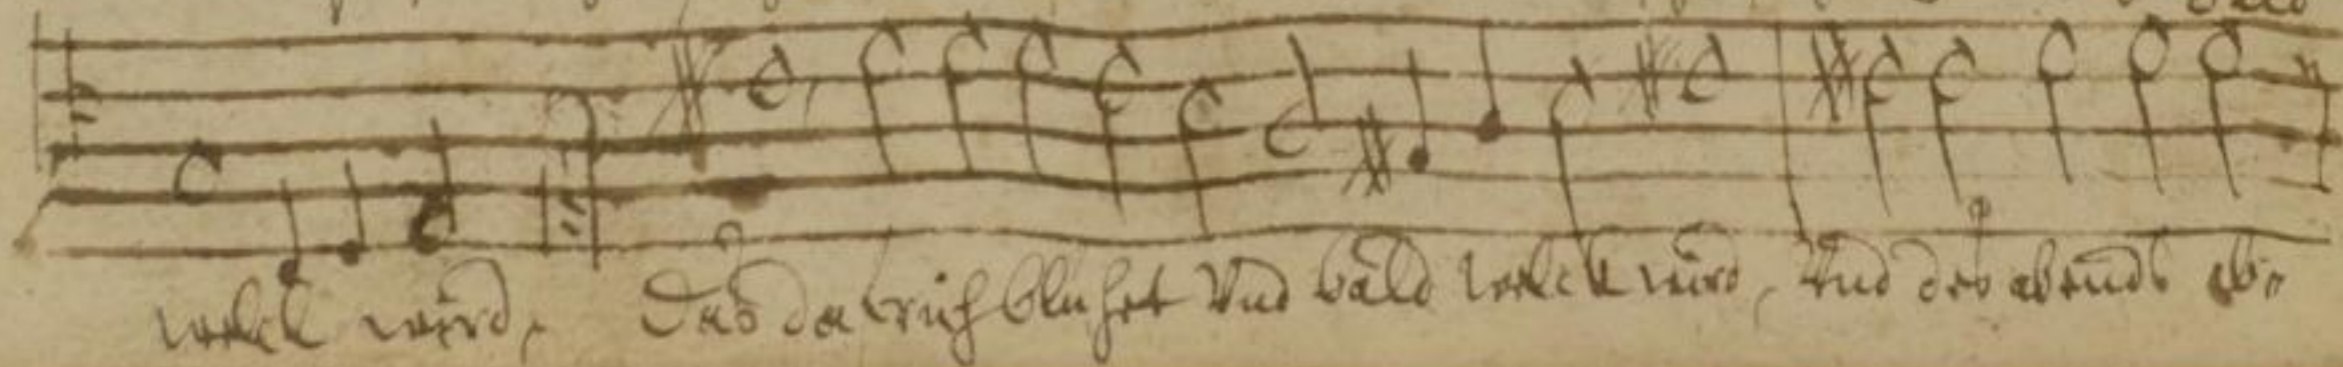 welck wird, Das da früh blühet Und bald welck wird, Und des abends abe